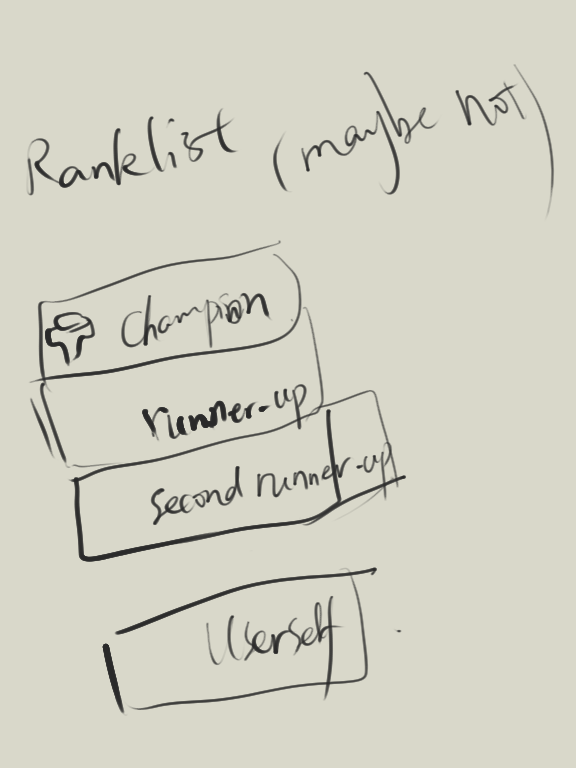 Ranklist (maybe not)
Champion
runner-up
second runner-up
Userself